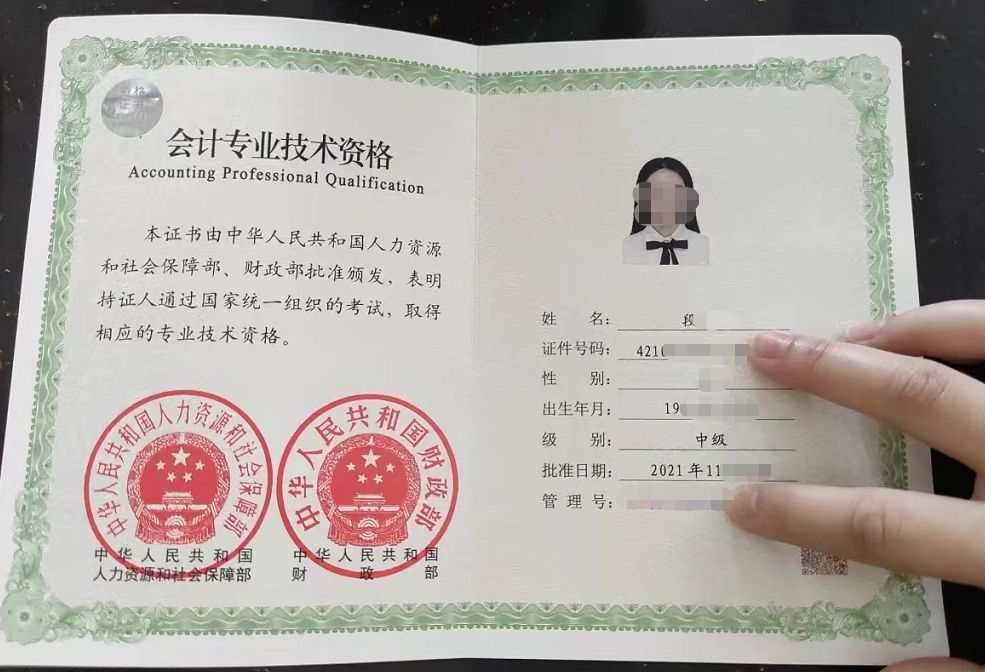 会计专业技术资格
Accounting Professional Qualification
本证书由中华人民共和国人力资源
和社会保障部、财政部批准颁发，表明
持证人通过国家统一组织的考试，取得
相应的专业技术资格。
中华人民共和国人力资源和社会保障部
中华人民共和国财政部
中华人民共和国
人力资源和社会保障部
中华人民共和国
财政部
姓名： 段
证件号码： 421
性别：
出生年月： 19
级别： 中级
批准日期： 2021年11
管理号：